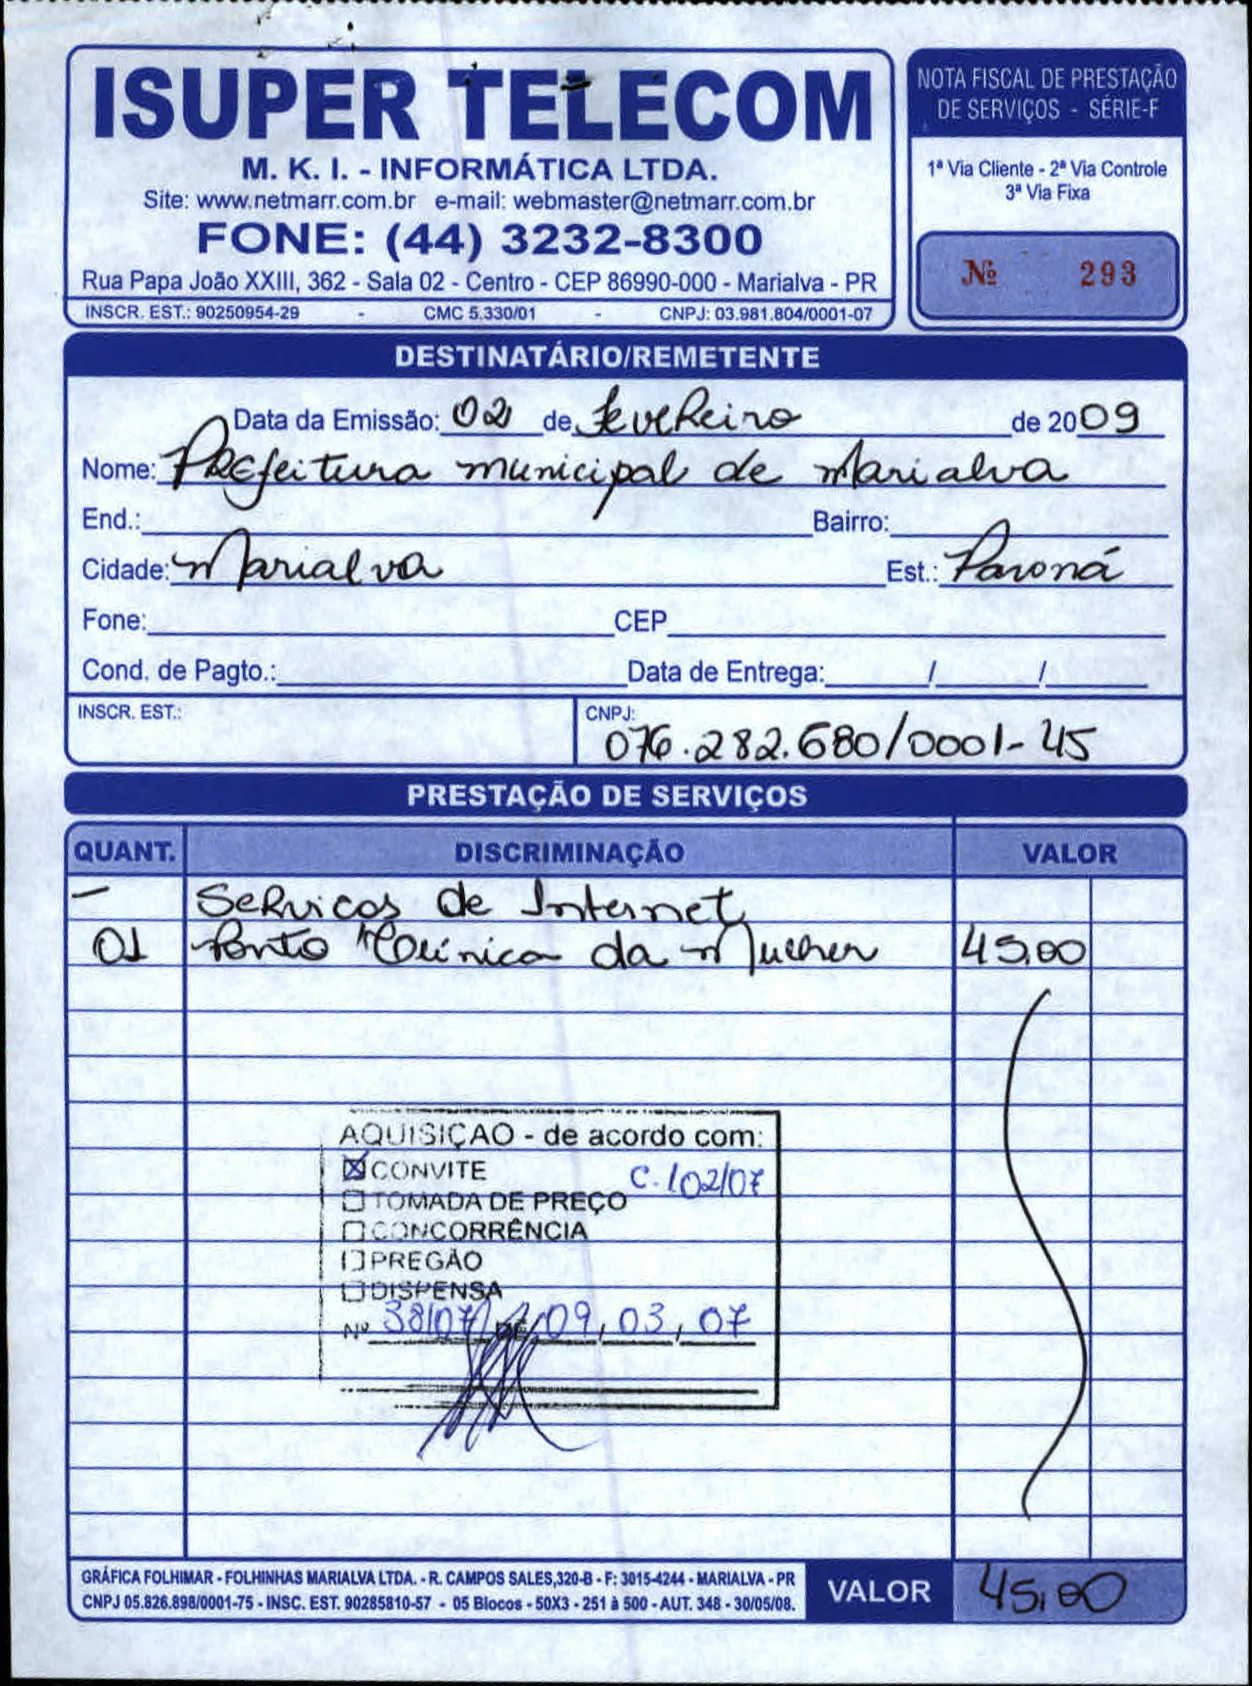 ISUPER TELECOM
M. K. I. - INFORMÁTICA LTDA.
Site: www.netmarr.com.br e-mail: webmaster@netmarr.com.br
FONE: (44) 3232-8300
Rua Papa João XXIII, 362 - Sala 02 - Centro - CEP 86990-000 - Marialva - PR
INSCR. EST.: 90250954-29 - CMC 5.330/01 - CNPJ: 03.981.804/0001-07
NOTA FISCAL DE PRESTAÇÃO
DE SERVIÇOS - SÉRIE-F
1ª Via Cliente - 2ª Via Controle
3ª Via Fixa
Nº 293
DESTINATÁRIO/REMETENTE
Data da Emissão: 02 de Fevereiro de 2009
Nome: Prefeitura municipal de Marialva
End.: Bairro:
Cidade: Marialva Est.: Paraná
Fone: CEP
Cond. de Pagto.: Data de Entrega: / /
INSCR. EST.: CNPJ:
076.282.680/0001-45
PRESTAÇÃO DE SERVIÇOS
QUANT. DISCRIMINAÇÃO VALOR
- Serviços de Internet
01 Ponto "Clínica da Mulher 45,00
AQUISIÇAO - de acordo com:
☒ CONVITE C. 102/07
☐ TOMADA DE PREÇO
☐ CONCORRÊNCIA
☐ PREGÃO
☐ DISPENSA
Nº 38/07 DE 09, 03, 07
GRÁFICA FOLHIMAR - FOLHINHAS MARIALVA LTDA. - R. CAMPOS SALES,320-B - F: 3015-4244 - MARIALVA - PR
CNPJ 05.826.898/0001-75 - INSC. EST. 90285810-57 - 05 Blocos - 50X3 - 251 à 500 - AUT. 348 - 30/05/08.
VALOR 45,00